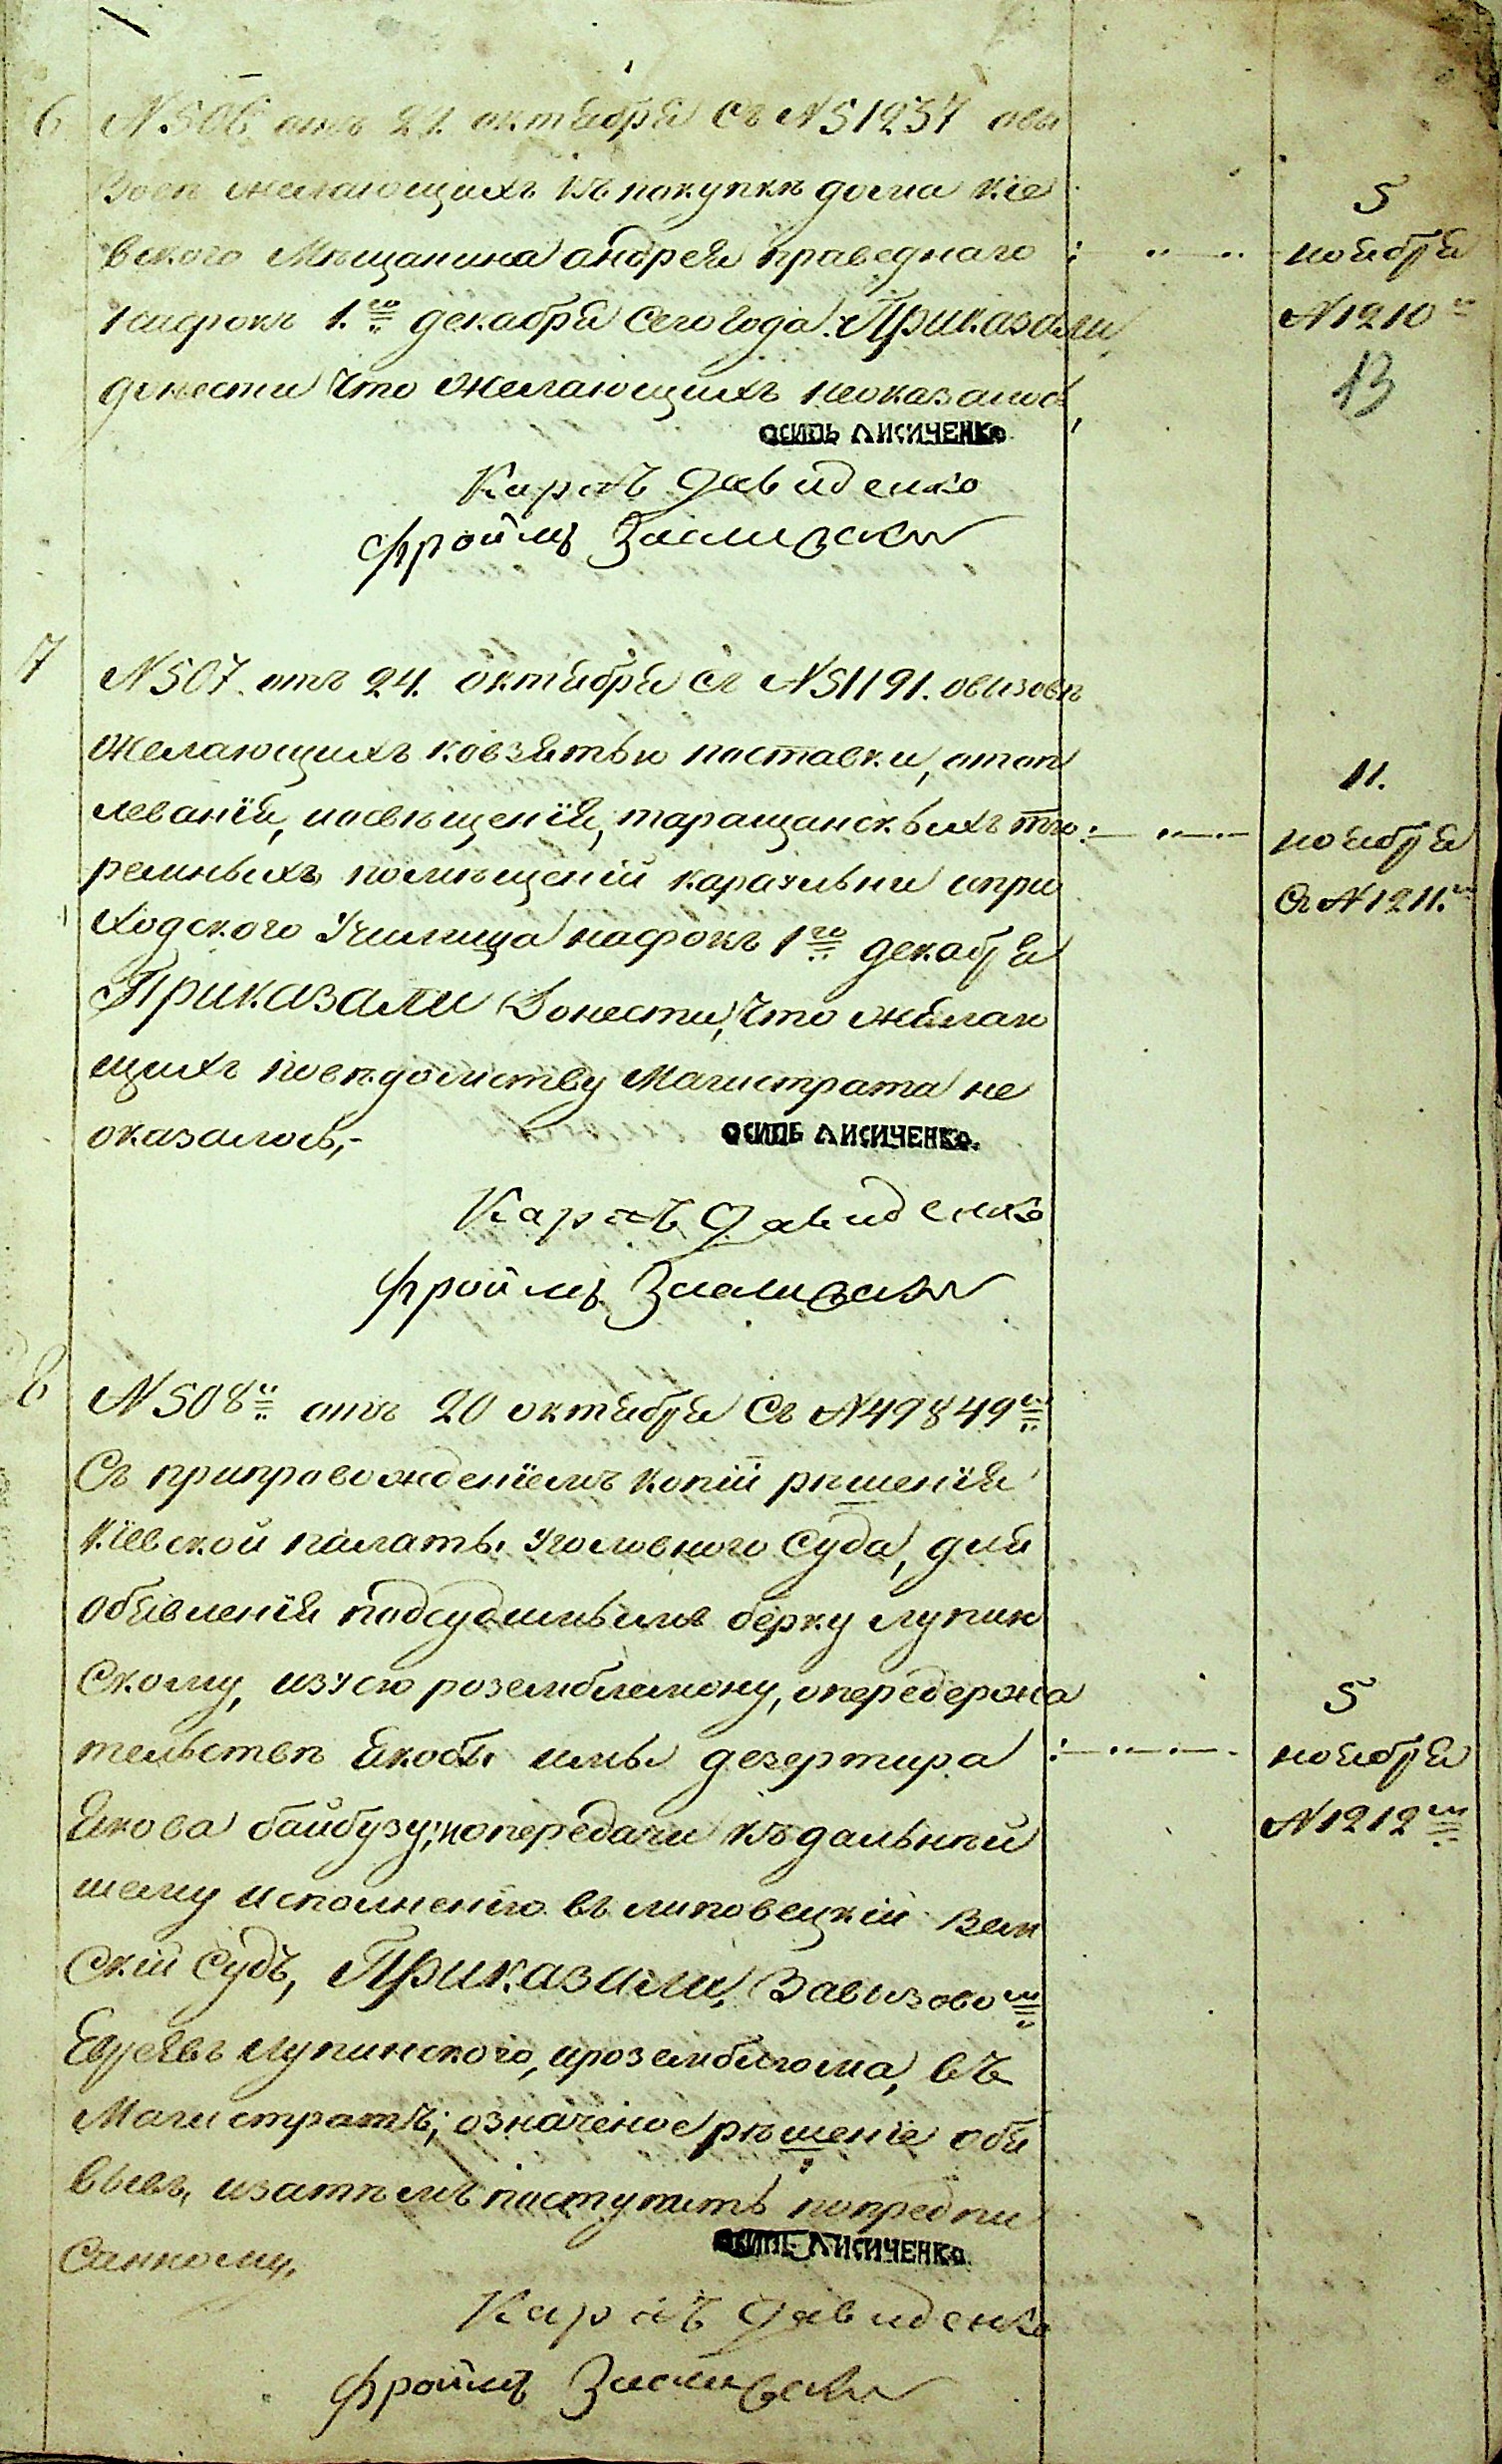 6 N 506. отъ 21. октября съ N 51237 овы
зовѣ желающихъ къ покупкѣ дома кіе
вского Мѣщанина андрея праведнаго
насрокъ 1.го декабря сего года. Приказали
донести что желающихъ неоказалось,
5
ноября
N 1210
13
осипъ лисиченко
Карпъ Давиденко
Фроимъ
7 N 507. отъ 24. октября съ N 51191. овызовѣ
желающихъ ковзятью поставки, отоп
леванія, иосвѣщенія, таращанскихъ тю
ремныхъ помѣщеній караульни ипри
ходского Училища насрокъ 1го декабря
Приказали Донести, что желаю
щихъ повѣдомству Магистрата не
оказалось,-
11.
ноября
съ N 1211.
осипъ лисиченко.
Карпъ Давиденко
Фроимъ
8 N 508й отъ 20 октября съ N 49849м
Съ припровожденіемъ копіи рѣшенія
Кіевской палаты Уголовного Суда, для
обявленія подсудимымъ берку лупин
скому, о передержа
тельствѣ якобы ими дезертира
Якова байбузу; и о передачи къ дальнѣй
шему исполненію въ липовецкій Зем
скій Судъ, Приказали, Завызовом
Евреевъ лупинского, ироземблюма, въ
Магистратъ; означеное рѣшеніе обя
вывъ, изатѣмъ поступить попредпи
санному,
5
ноября
N 1212м
осипъ лисиченко.
Карпъ Давиденко
Фроимъ